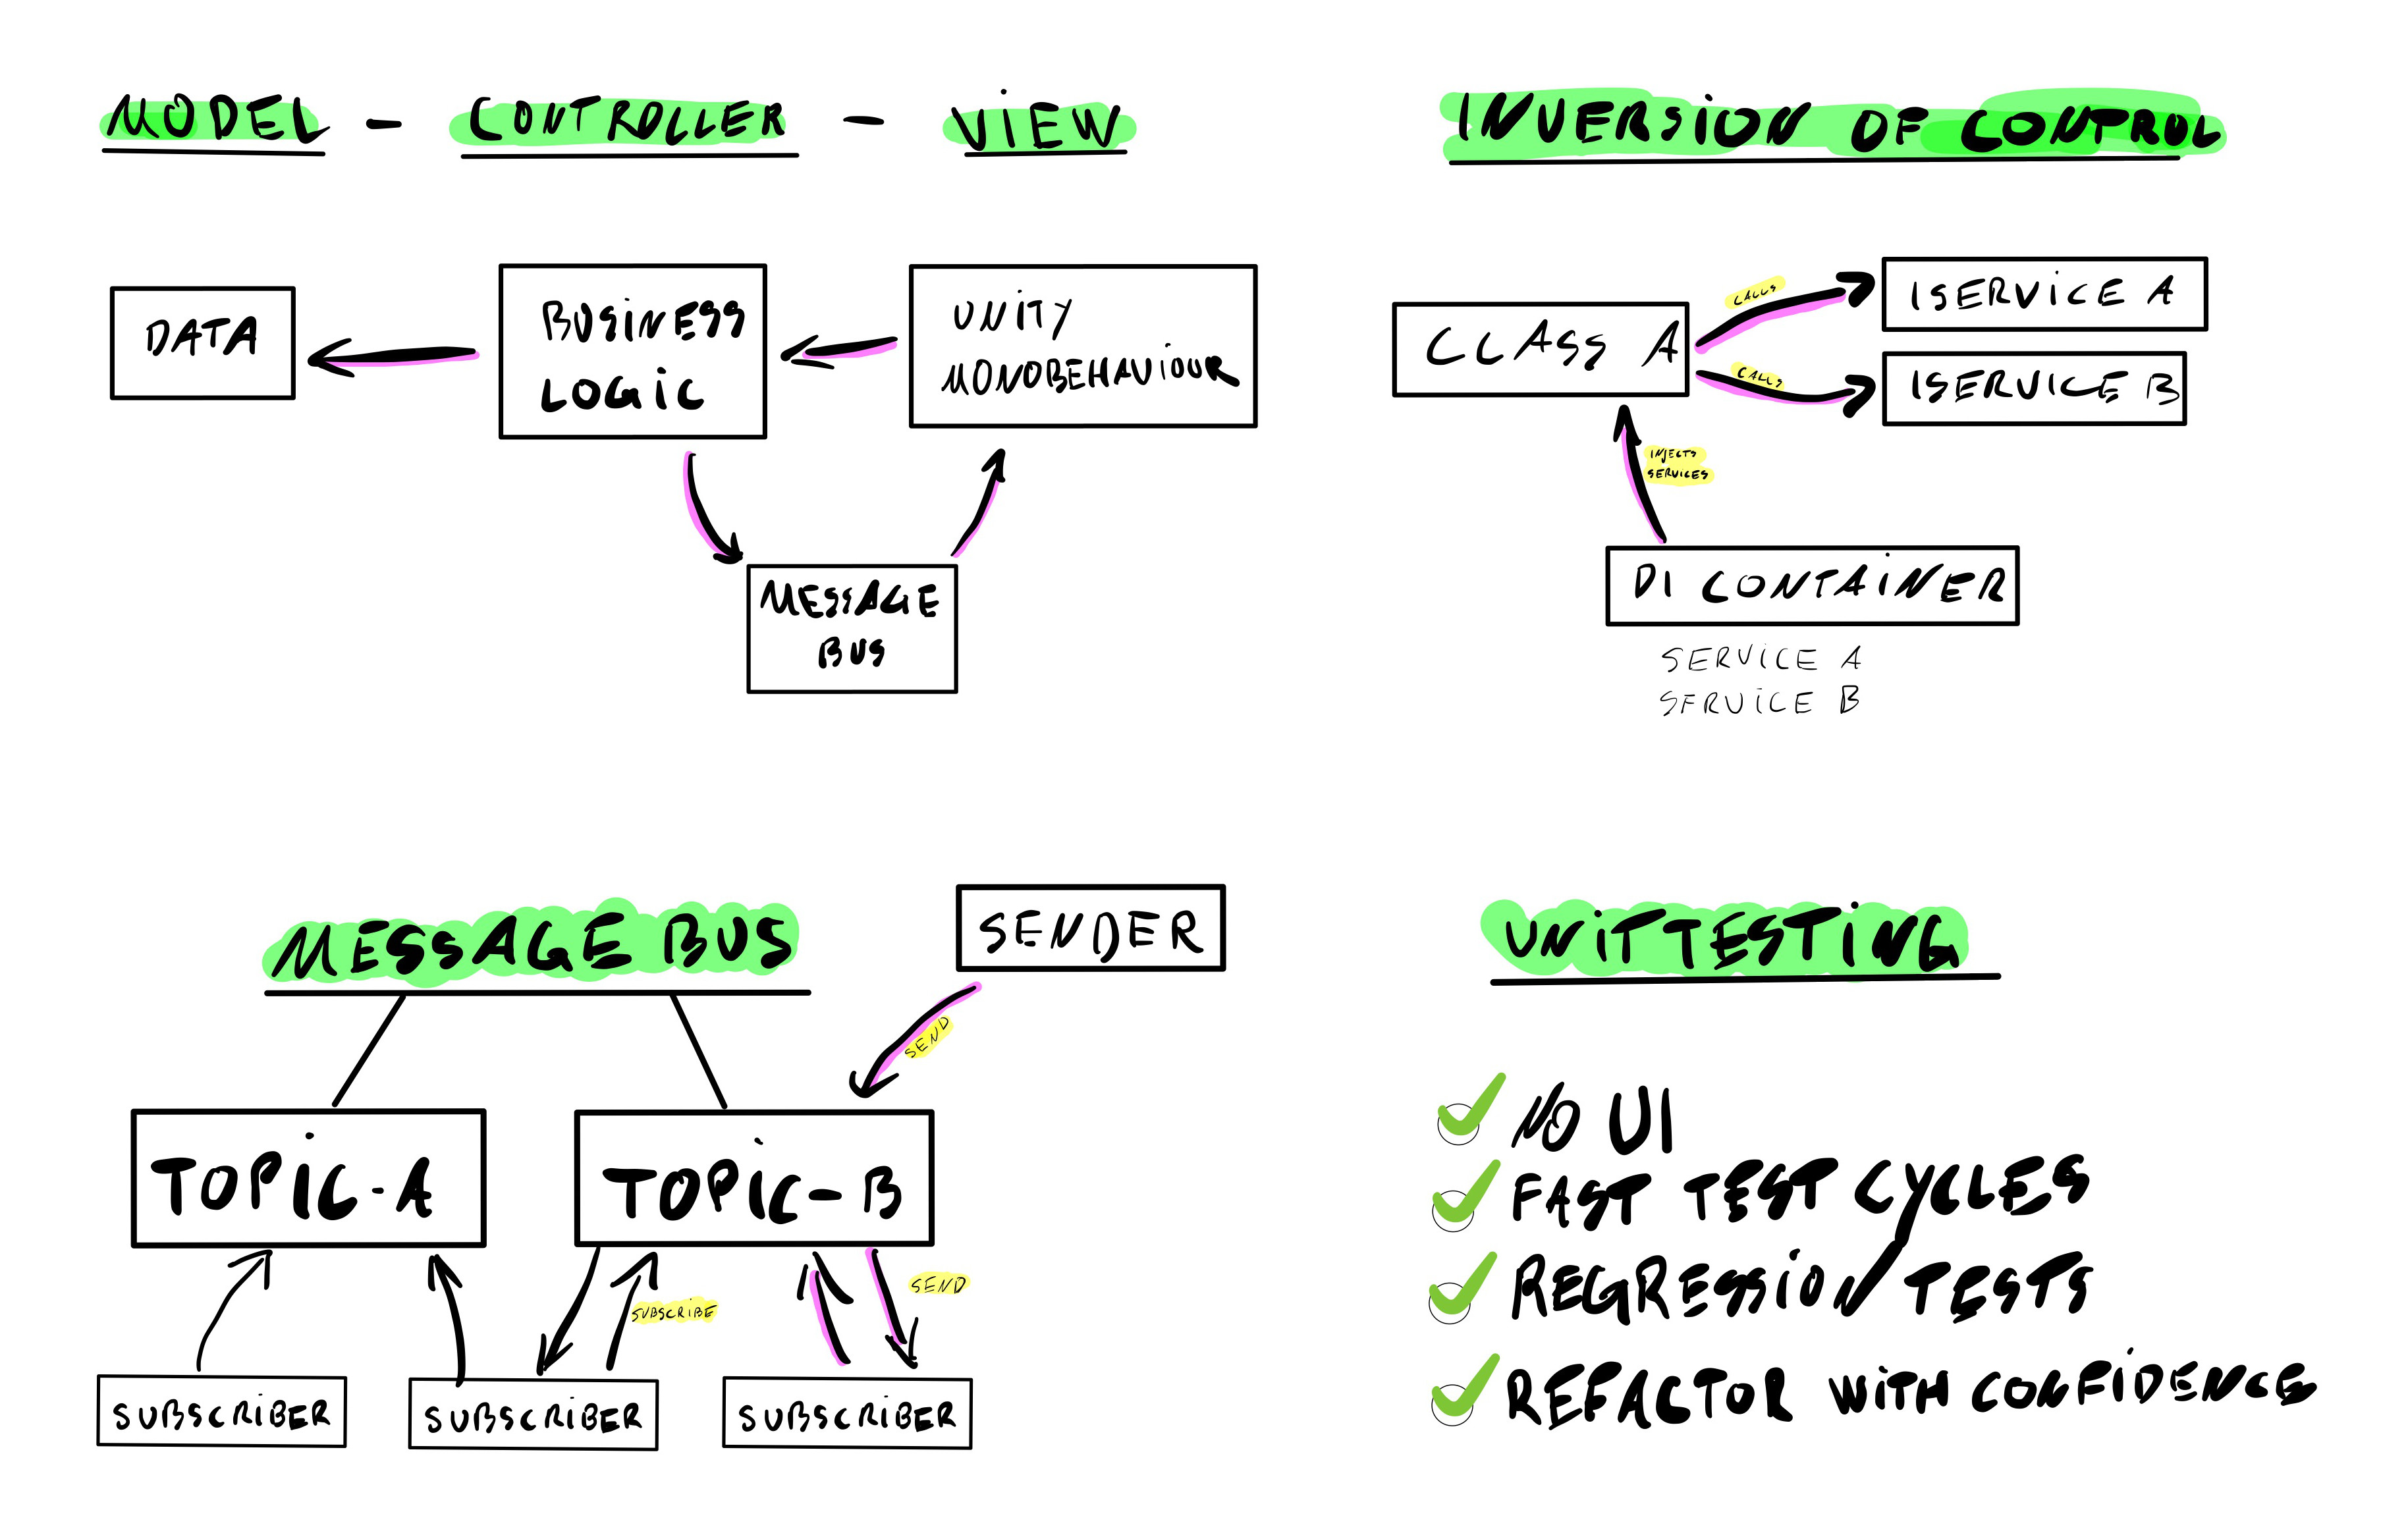 MODEL - CONTROLLER - VIEW
DATA
BUSINESS
LOGIC
UNITY
MONOBEHAVIOUR
MESSAGE
BUS
INVERSION OF CONTROL
CLASS A
CALLS
CALLS
ISERVICE A
ISERVICE B
INJECTS
SERVICES
DI CONTAINER
SERVICE A
SERVICE B
MESSAGE BUS
SENDER
SEND
TOPIC-A
TOPIC-B
SUBSCRIBE
SEND
SUBSCRIBER
SUBSCRIBER
SUBSCRIBER
UNIT TESTING
NO UI
FAST TEST CYCLES
REGRESSION TESTS
REFACTOR WITH CONFIDENCE